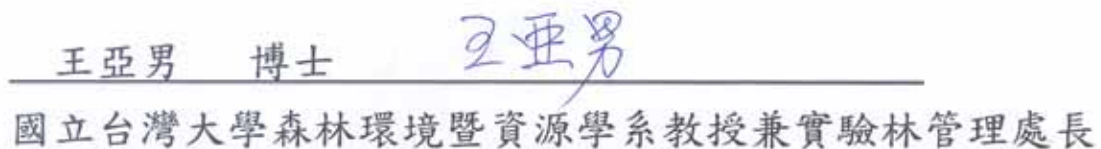 王亞男 博士 王亞男
國立台灣大學森林環境暨資源學系教授兼實驗林管理處長